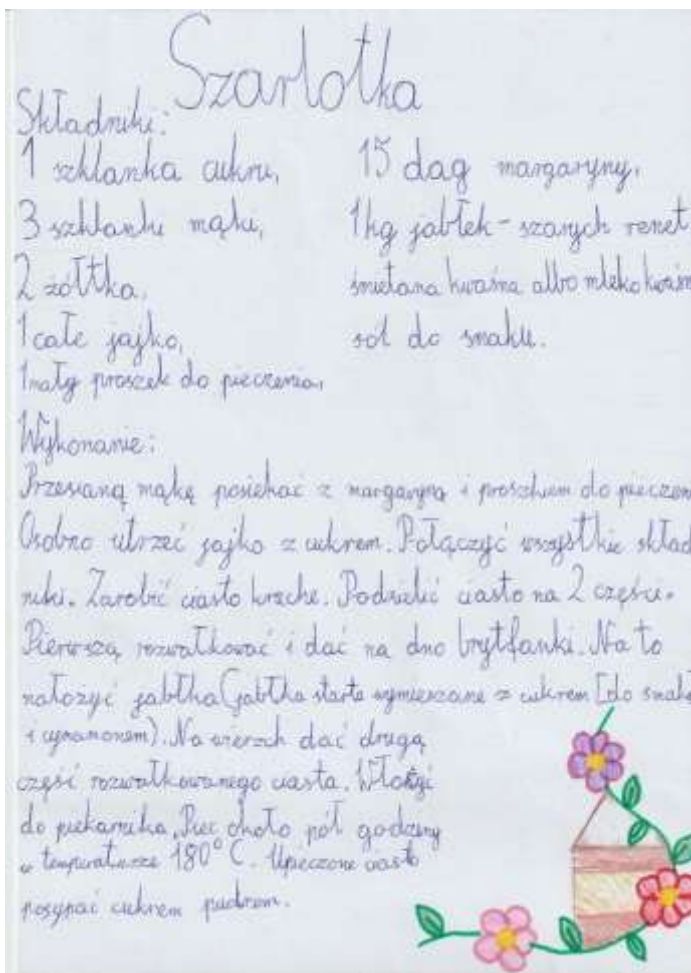 Szarlotka
Składniki:
1 szklanka cukru,
3 szklanki mąki,
2 żółtka,
1 całe jajko,
1 mały proszek do pieczenia,
15 dag margaryny,
1 kg jabłek - szarych renet
śmietana kwaśna albo mleko kwaśn
sól do smaku.
Wykonanie:
Przesianą mąkę posiekać z margaryną i proszkiem do pieczen
Osobno utrzeć jajko z cukrem. Połączyć wszystkie skład
niki. Zarobić ciasto kruche. Podzielić ciasto na 2 części.
Pierwszą rozwałkować i dać na dno brytfanki. Na to
nałożyć jabłka (jabłka starte wymieszane z cukrem [do smak
i cynamonem). Na wierzch dać drugą
część rozwałkowanego ciasta. Włożyć
do piekarnika. Piec około pół godziny
w temperaturze 180°C. Upieczone ciasto
posypać cukrem pudrem.